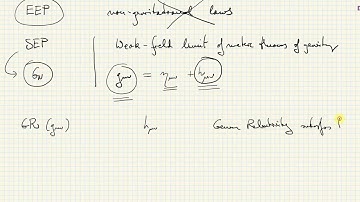 EEP non-gravitational laws
SEP Weak-field limit of metric theories of gravity
G_N g_μν = η_μν + h_μν
GR (g_μν) h_μν General Relativity satisfies